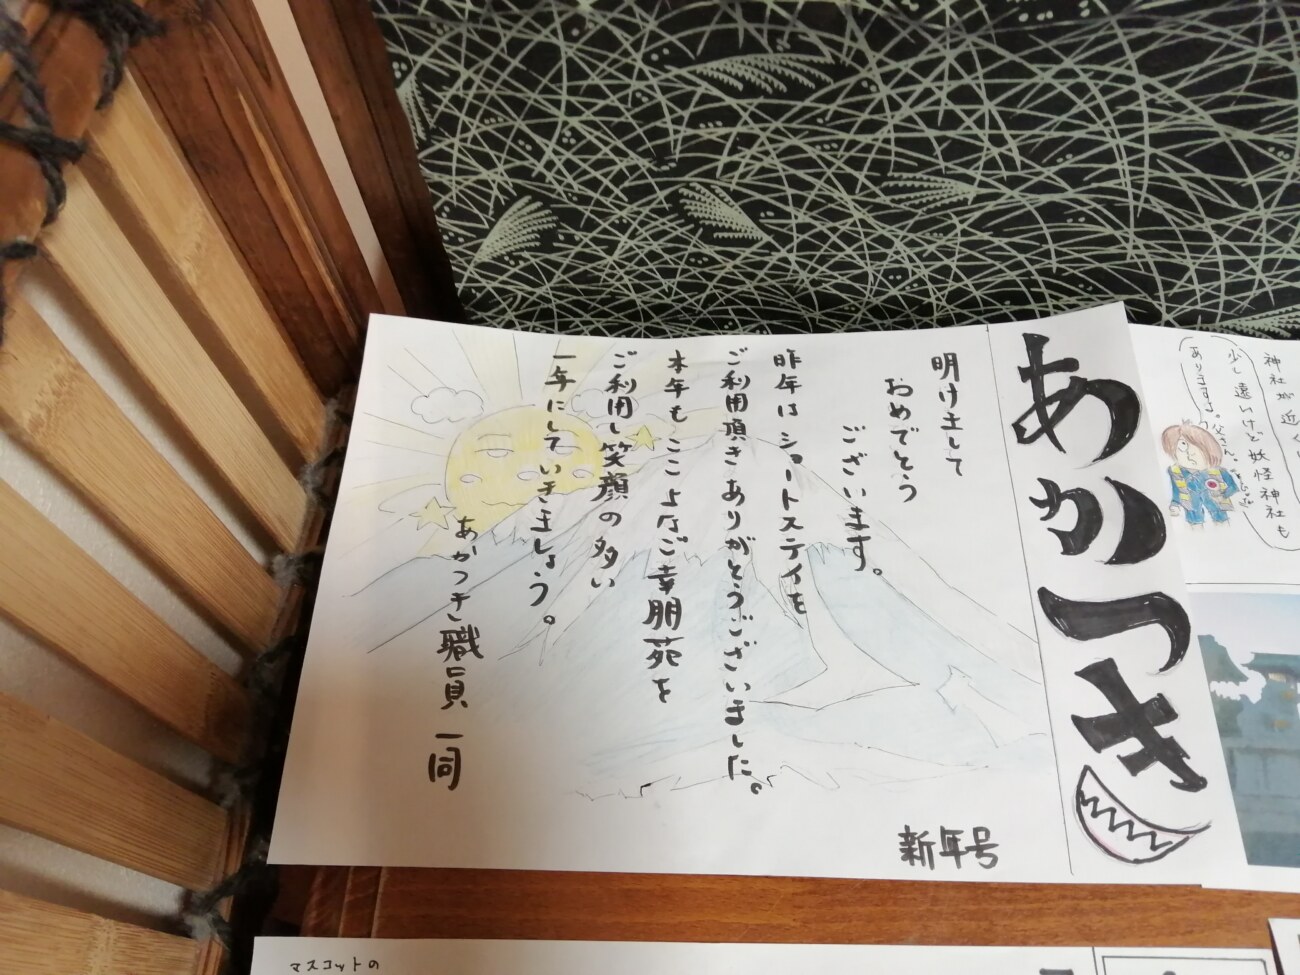 あかつき
明けまして
おめでとう
ございます。
昨年はショートステイを
ご利用頂きありがとうございました。
本年もここよなご幸朋苑を
ご利用し笑顔の多い
一年にしていきましょう。
あかつき職員一同
新年号
神社が近く
少し遠いけど妖怪神社も
ありますよ。父さん。
マスコットの